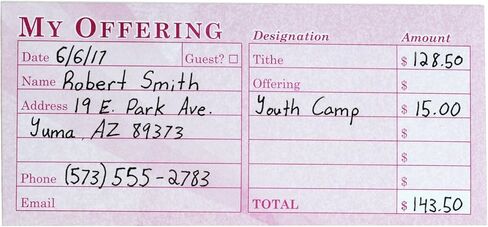 MY OFFERING
Date 6/6/17 Guest?
Name Robert Smith
Address 19 E. Park Ave.
Yuma, AZ 89373
Phone (573) 555-2783
Email
Designation Amount
Tithe $ 128.50
Offering $
Youth Camp $ 15.00
$
$
$
TOTAL $ 143.50